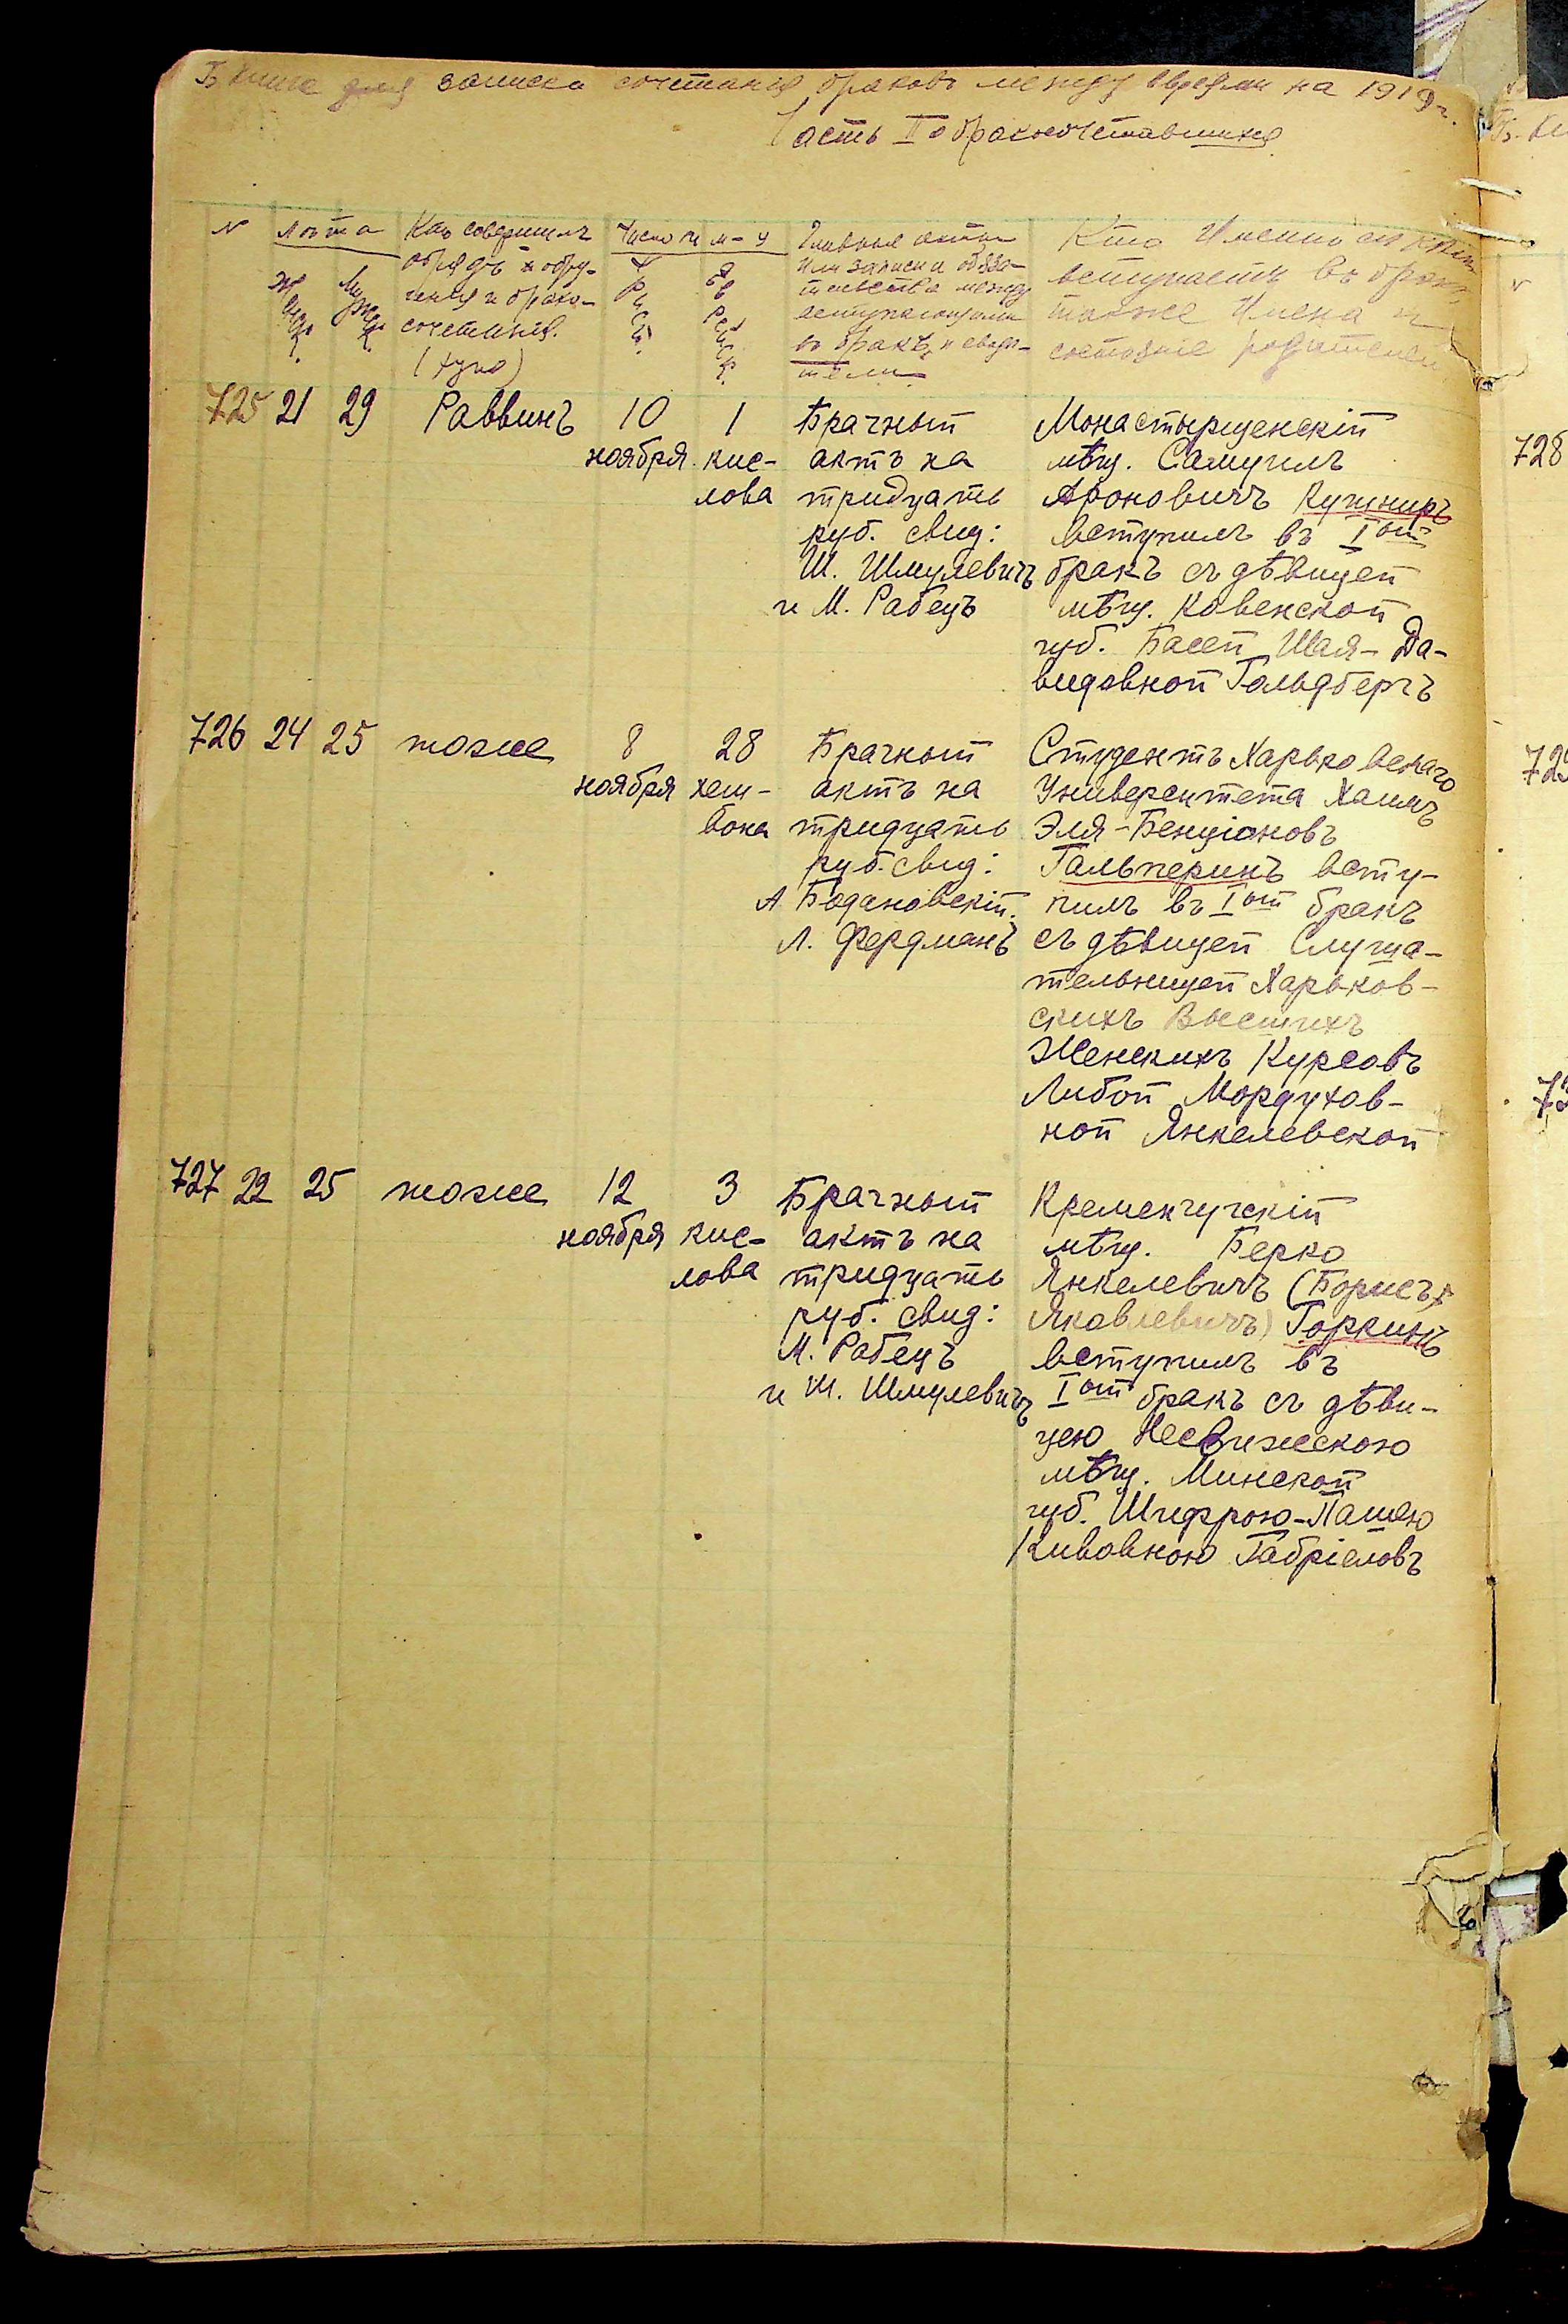 Б Книга для записки сочетания браковъ между евреями на 1919 г.
Часть II о бракосочетавшихся
№
Лѣта
Женск.
Мужск.
Кто совершилъ
обрядъ обру-
ченія и брако-
сочетанія.
(хупо)
Число и м-ц
Христ.
Еврейск.
Главные акты
или записи обяза-
тельства между
вступающими
въ бракъ и свидѣ-
тели.
Кто именно съ кѣмъ
вступаетъ въ бракъ,
также имена и
состояніе родителей
725 21 29 Раввинъ 10
ноября
1
кис-
лова
Брачный
актъ на
тридцать
руб. свид:
Ш. Шмулевичъ
и М. Рабецъ
Монастырщенскій
мѣщ. Самуилъ
Ароновичъ Кушниръ
вступилъ въ Iый
бракъ съ дѣвицей
мѣщ. Ковенской
губ. Басей Шая-Да-
видовной Гольдбергъ
726 24 25 тоже 8
ноября
28
хеш-
вона
Брачный
актъ на
тридцать
руб. свид:
А Бодановскій
Л. Фердманъ
Студентъ Харьковскаго
Университета Хаимъ
Эля-Бенціоновъ
Гальперинъ всту-
пилъ въ Iый бракъ
съ дѣвицей Слуша-
тельницей Харьков-
скихъ Высшихъ
Женскихъ Курсовъ
Либой Мордухов-
ной Янкелевской
727 22 25 тоже 12
ноября
3
кис-
лова
Брачный
актъ на
тридцать
руб. свид:
М. Рабецъ
и Ш. Шмулевичъ
Кременчугскій
мѣщ. Берко
Янкелевичъ (Борисъ
Яковлевичъ) Горкинъ
вступилъ въ
Iый бракъ съ дѣви-
цею Несвижескою
мѣщ. Минской
губ. Шифрою-Пашею
Кивовною Габріеловъ
728